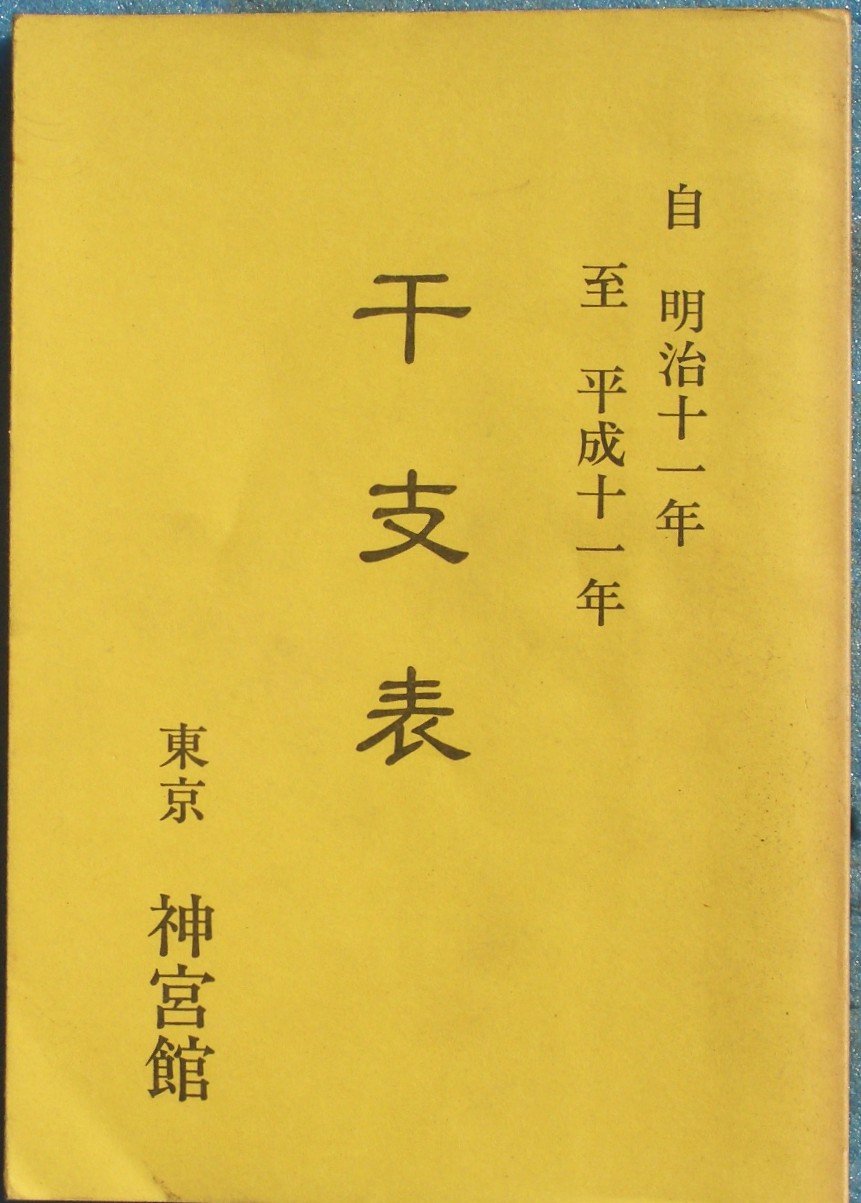 自 明治十一年
至 平成十一年
干支表
東京 神宮館